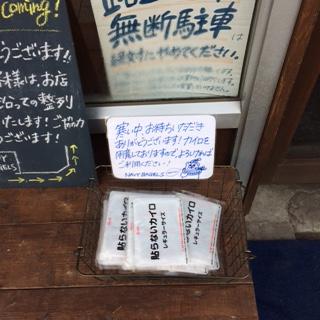 Coming!
うございます!!
客様は、お店
沿っての整列
いたします!ご協力
うございます!
無断駐車は
絶対にやめてください。
寒い中、お待ちいただき
ありがとうございます!カイロを
用意しておりますので、よろしければ
ご利用ください!
NAVY BAGELS
貼らないカイロ
レギュラーサイズ
貼らないカイロ
レギュラーサイズ